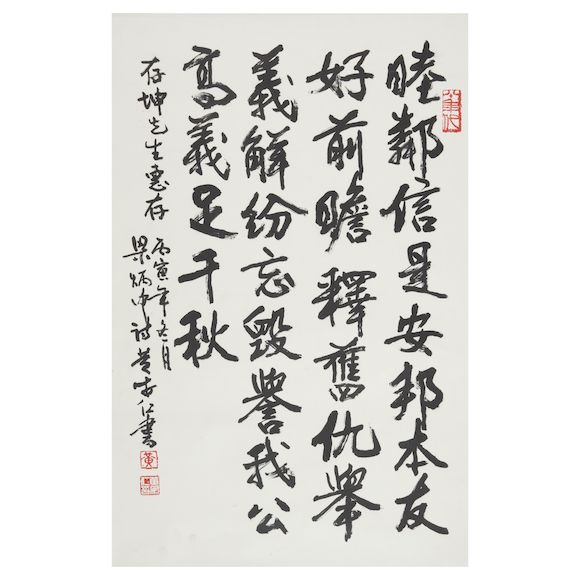 睦鄰信是安邦本友
好前瞻釋舊仇舉
義解紛忘毀譽我公
高義足千秋
存坤先生惠存
丙寅年冬月
梁炳詩黄安仁書
黃